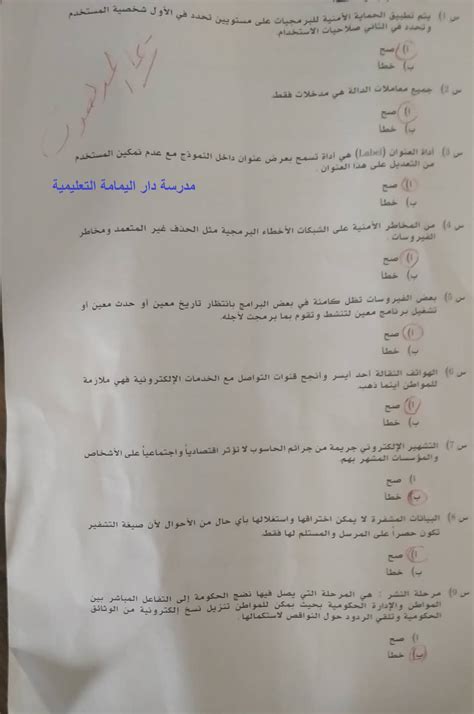 س 1) يتم تطبيق الحماية الأمنية للبرمجيات على مستويين تحدد في الأول شخصية المستخدم
وتحدد في الثاني صلاحيات الاستخدام.
أ) صح
ب) خطأ
س 2) جميع معاملات الدالة هي مدخلات فقط.
أ) صح
ب) خطأ
س 3) أداة العنوان (Label) هي أداة تسمح بعرض عنوان داخل النموذج مع عدم تمكين المستخدم
من التعديل على هذا العنوان.
أ) صح
ب) خطأ
مدرسة دار اليمامة التعليمية
س 4) من المخاطر الأمنية على الشبكات الأخطاء البرمجية مثل الحذف غير المتعمد ومخاطر
الفيروسات.
أ) صح
ب) خطأ
س 5) بعض الفيروسات تظل كامنة في بعض البرامج بانتظار تاريخ معين أو حدث معين أو
تشغيل برنامج معين لتنشط وتقوم بما برمجت لأجله.
أ) صح
ب) خطأ
س 6) الهواتف النقالة أحد أيسر وأنجح قنوات التواصل مع الخدمات الإلكترونية فهي ملازمة
للمواطن أينما ذهب.
أ) صح
ب) خطأ
س 7) التشهير الإلكتروني جريمة من جرائم الحاسوب لا تؤثر اقتصادياً واجتماعياً على الأشخاص
والمؤسسات المشهر بهم.
أ) صح
ب) خطأ
س 8) البيانات المشفرة لا يمكن اختراقها واستغلالها بأي حال من الأحوال لأن صيغة التشفير
تكون حصراً على المرسل والمستلم لها فقط.
أ) صح
ب) خطأ
س 9) مرحلة النشر : هي المرحلة التي يصل فيها نضج الحكومة إلى التفاعل المباشر بين
المواطن والإدارة الحكومية بحيث يمكن للمواطن تنزيل نسخ إلكترونية من الوثائق
الحكومية وتلقي الردود حول النواقص لاستكمالها.
أ) صح
ب) خطأ